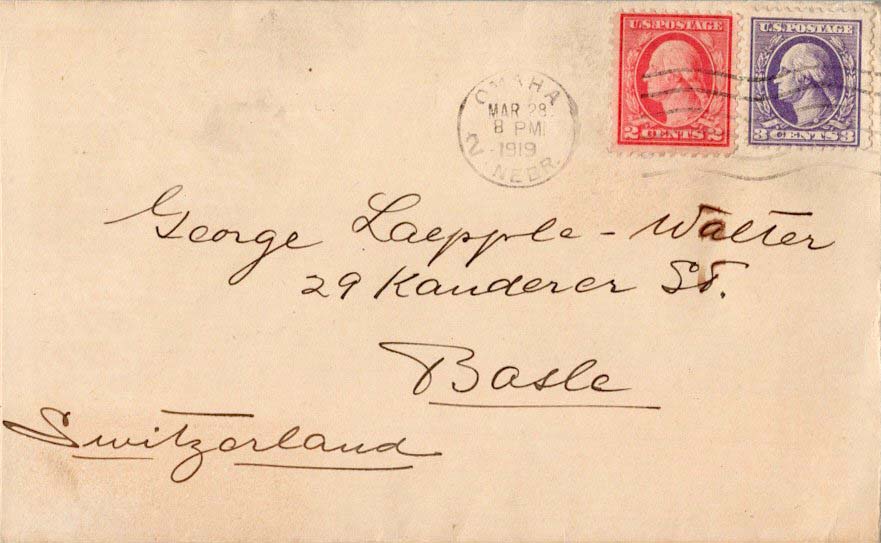 U.S. POSTAGE
2 CENTS 2
U.S. POSTAGE
3 CENTS 3
OMAHA
MAR 28.
8 PM
1919
2 NEBR.
George Laepple - Walter
29 Kanderer St.
Basle
Switzerland